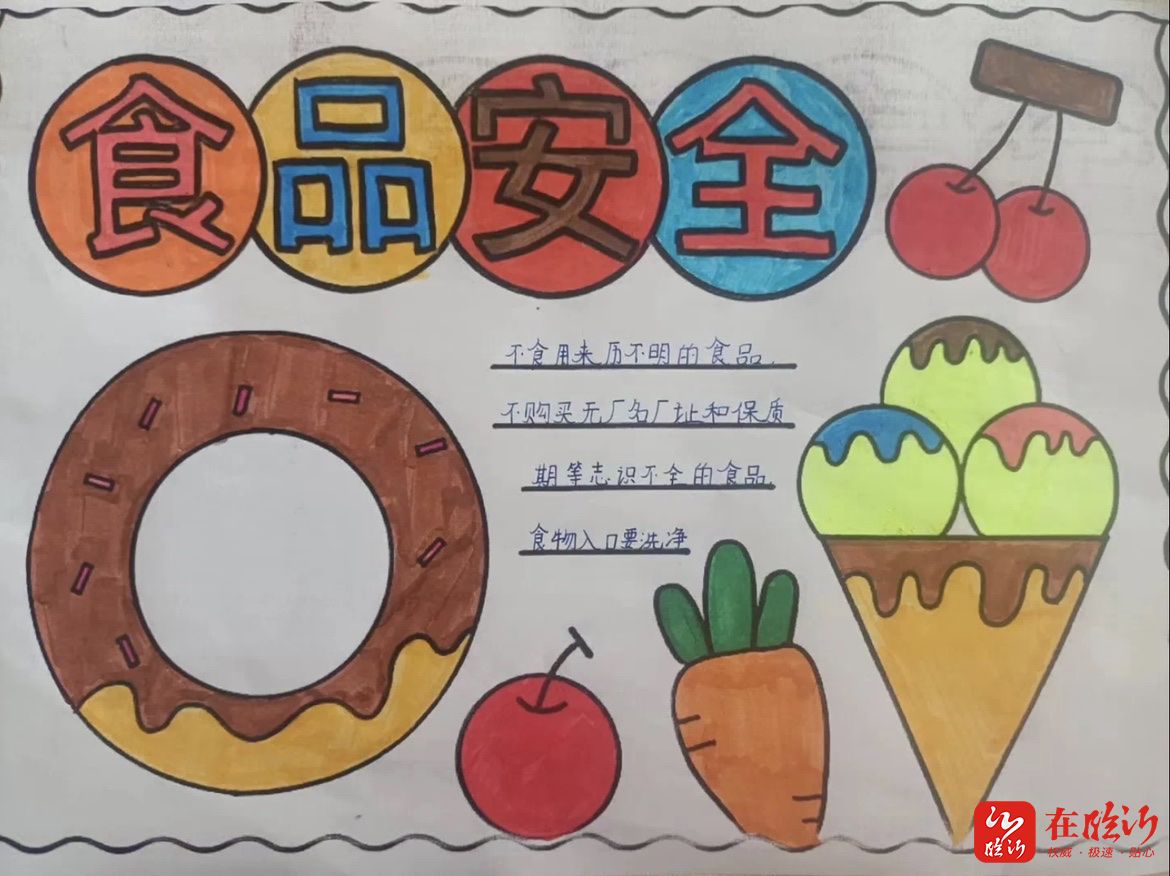 食品安全
不食用来历不明的食品.
不购买无厂名厂址和保质
期等志识不全的食品.
食物入口要洗净
在临沂
临沂
权威·极速·贴心